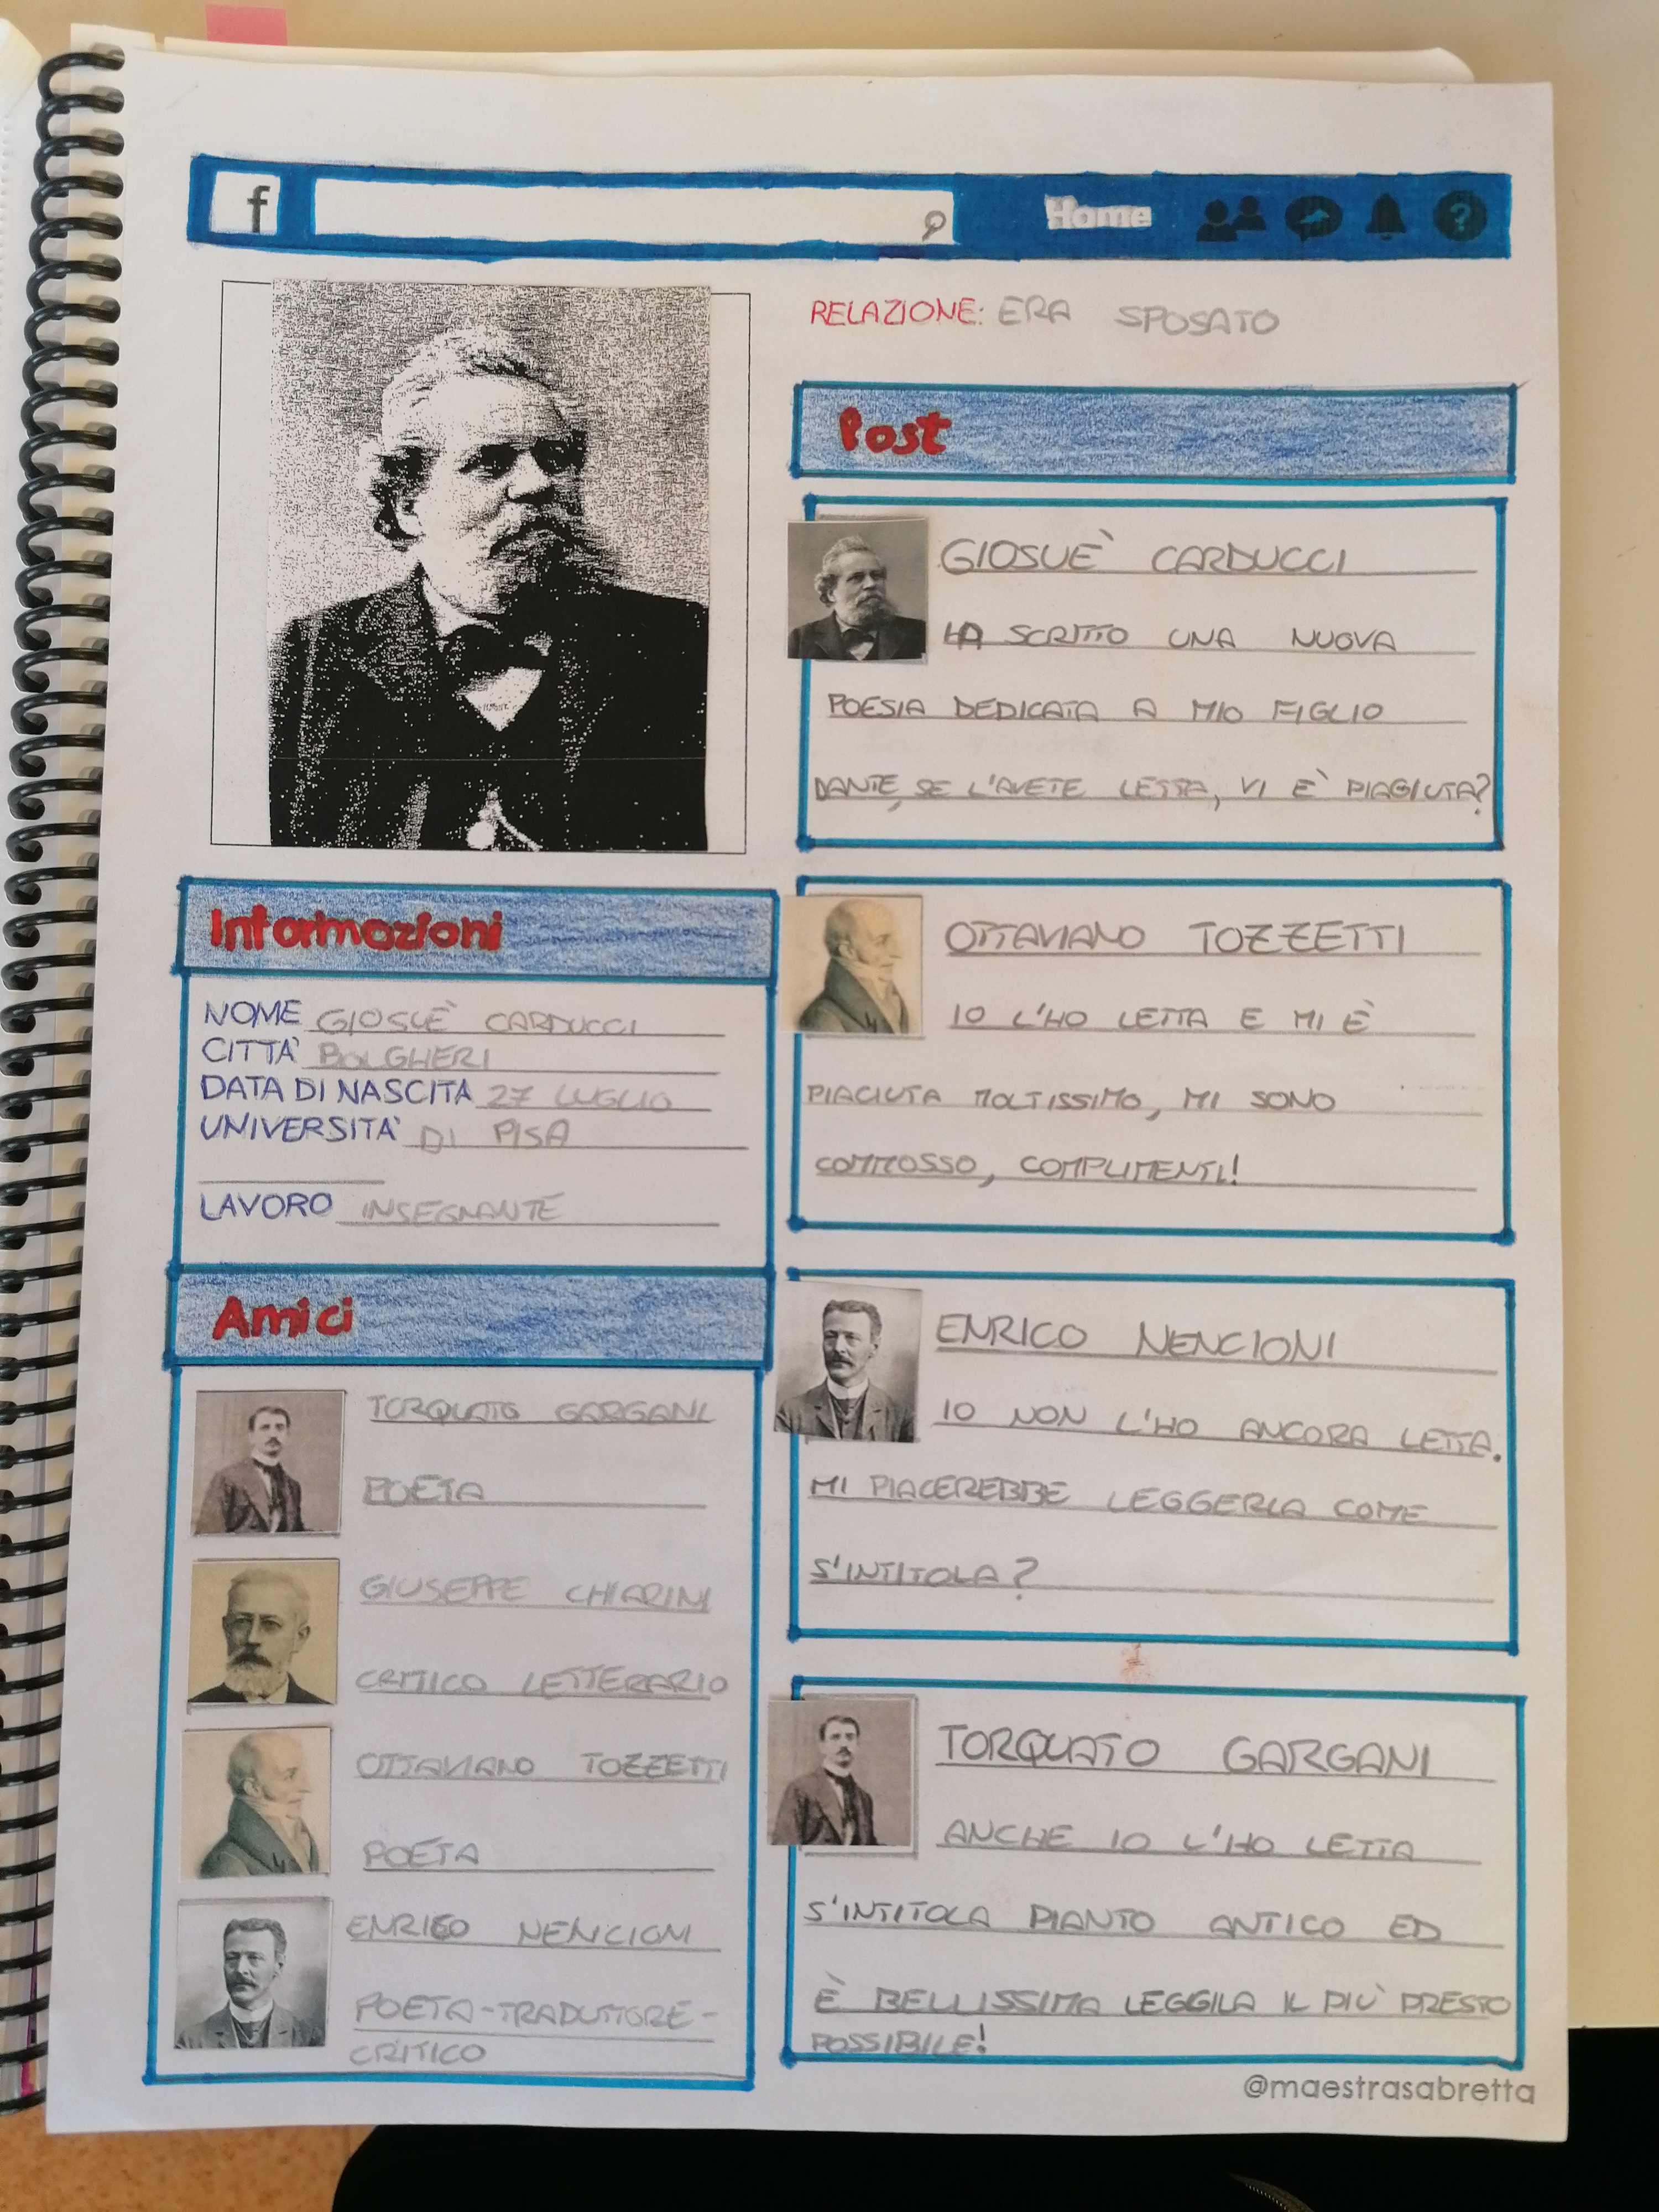 f
Home
?
RELAZIONE: ERA SPOSATO
Post
GIOSUÈ CARDUCCI
HA SCRITTO UNA NUOVA
POESIA DEDICATA A MIO FIGLIO
DANTE, SE L'AVETE LETTA, VI È PIAGIUTA?
OTTAVIANO TOZZETTI
IO L'HO LETTA E MI È
PIACIUTA MOLTISSIMO, MI SONO
COMMOSSO, COMPLIMENTI!
ENRICO NENCIONI
IO NON L'HO ANCORA LETTA.
MI PIACEREBBE LEGGERLA COME
S'INTITOLA?
TORQUATO GARGANI
ANCHE IO L'HO LETTA
S'INTITOLA PIANTO ANTICO ED
È BELLISSIMA LEGGILA IL PIÙ PRESTO
POSSIBILE!
Informazioni
NOME GIOSUÈ CARDUCCI
CITTA' BOLGHERI
DATA DI NASCITA 27 LUGLIO
UNIVERSITA' DI PISA
LAVORO INSEGNANTE
Amici
TORQUATO GARGANI
POETA
GIUSEPPE CHIARINI
CRITICO LETTERARIO
OTTAVIANO TOZZETTI
POETA
ENRICO NENCIONI
POETA-TRADUTTORE-
CRITICO
@maestrasabretta